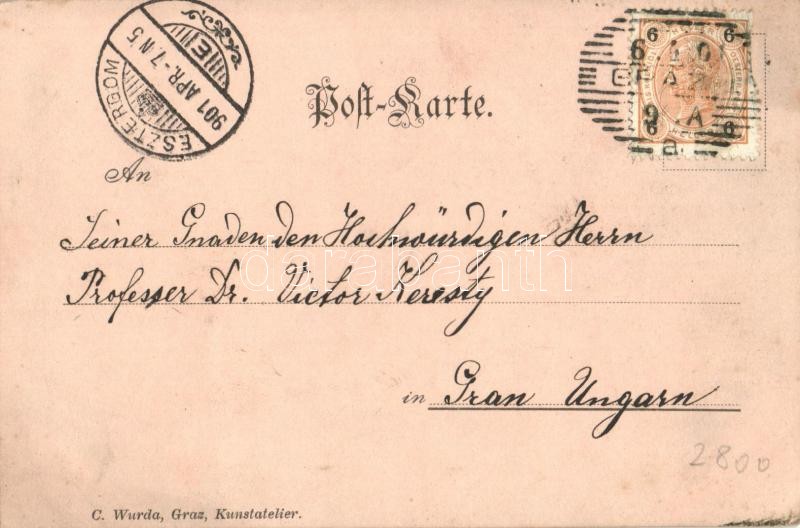 ESZTERGOM
901 APR. - 7. N 5
E
Post-Karte.
6 6
6 6
HELLER
An
Seiner Gnaden den Hochwürdigen Herrn
Professer Dr. Victor Keresty
darabanth
in Gran Ungarn
2800
C. Wurda, Graz, Kunstatelier.